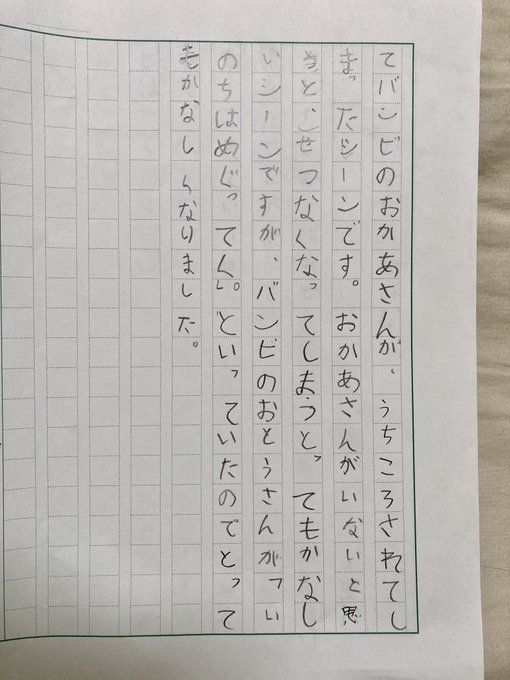 てバンビのおかあさんが、うちころされてし
まったシーンです。おかあさんがいないと思
うと、せつなくなってしまうとってもかなし
いシーンですが、バンビのおとうさんが「い
のちはめぐってく。」といっていたのでとって
もかなしくなりました。